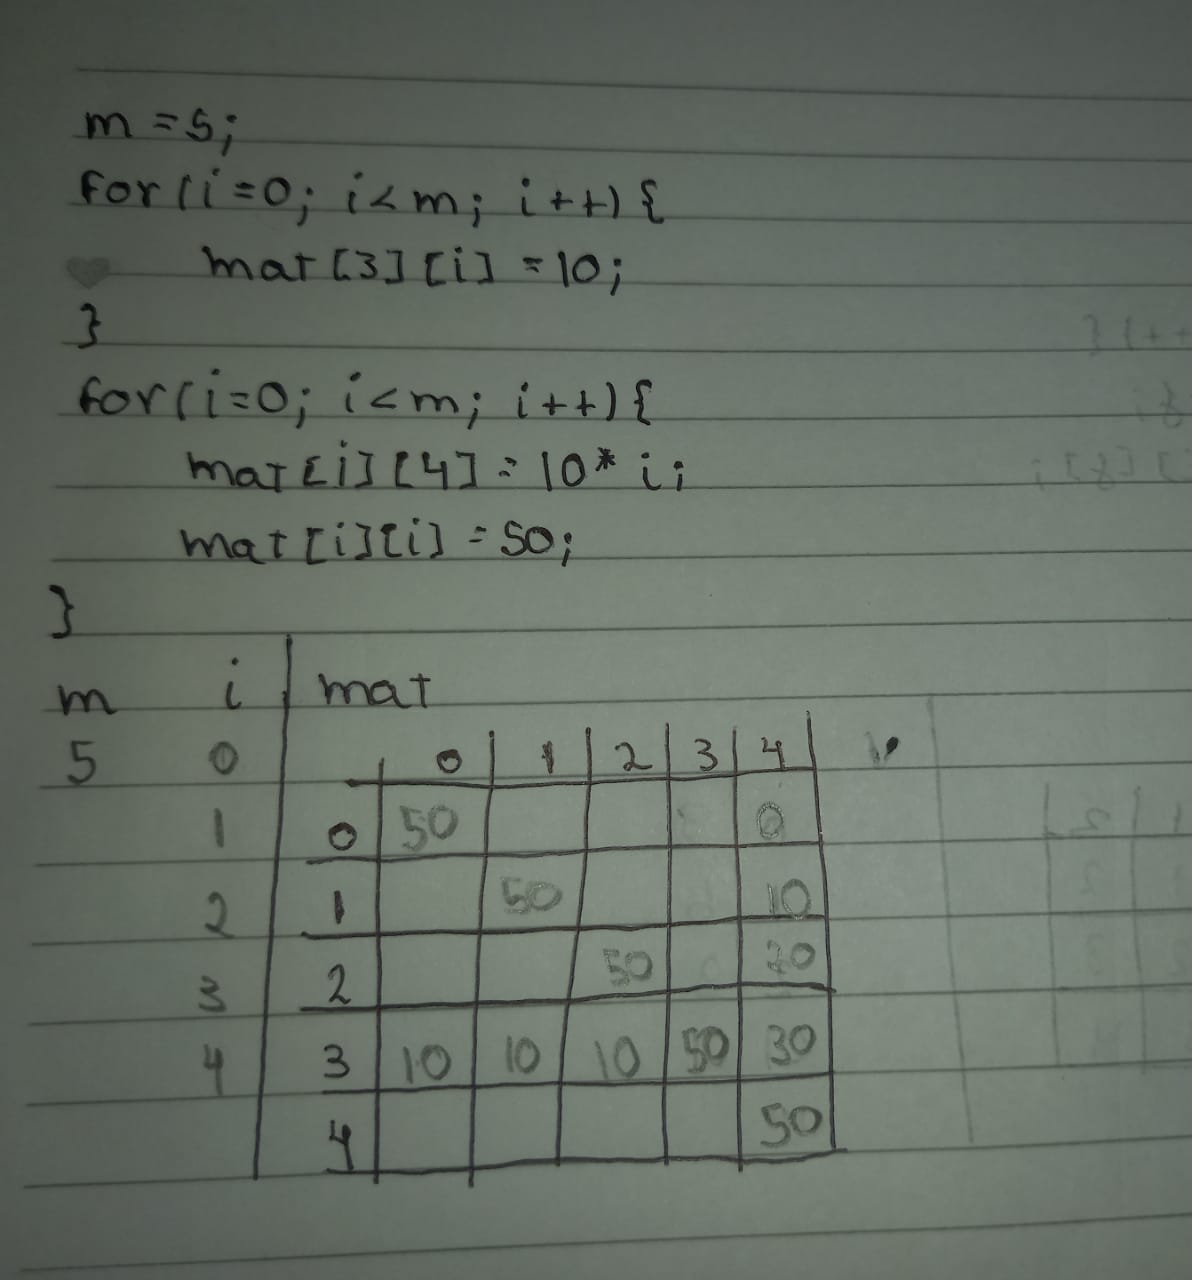 m = 5;
for(i=0; i<m; i++){
mat[3][i] = 10;
}
for(i=0; i<m; i++){
mat[i][4] = 10* i;
mat[i][i] = 50;
}
m i mat
5 0 0 1 2 3 4
1 0 50 0
2 1 50 10
3 2 50 20
4 3 10 10 10 50 30
4 50